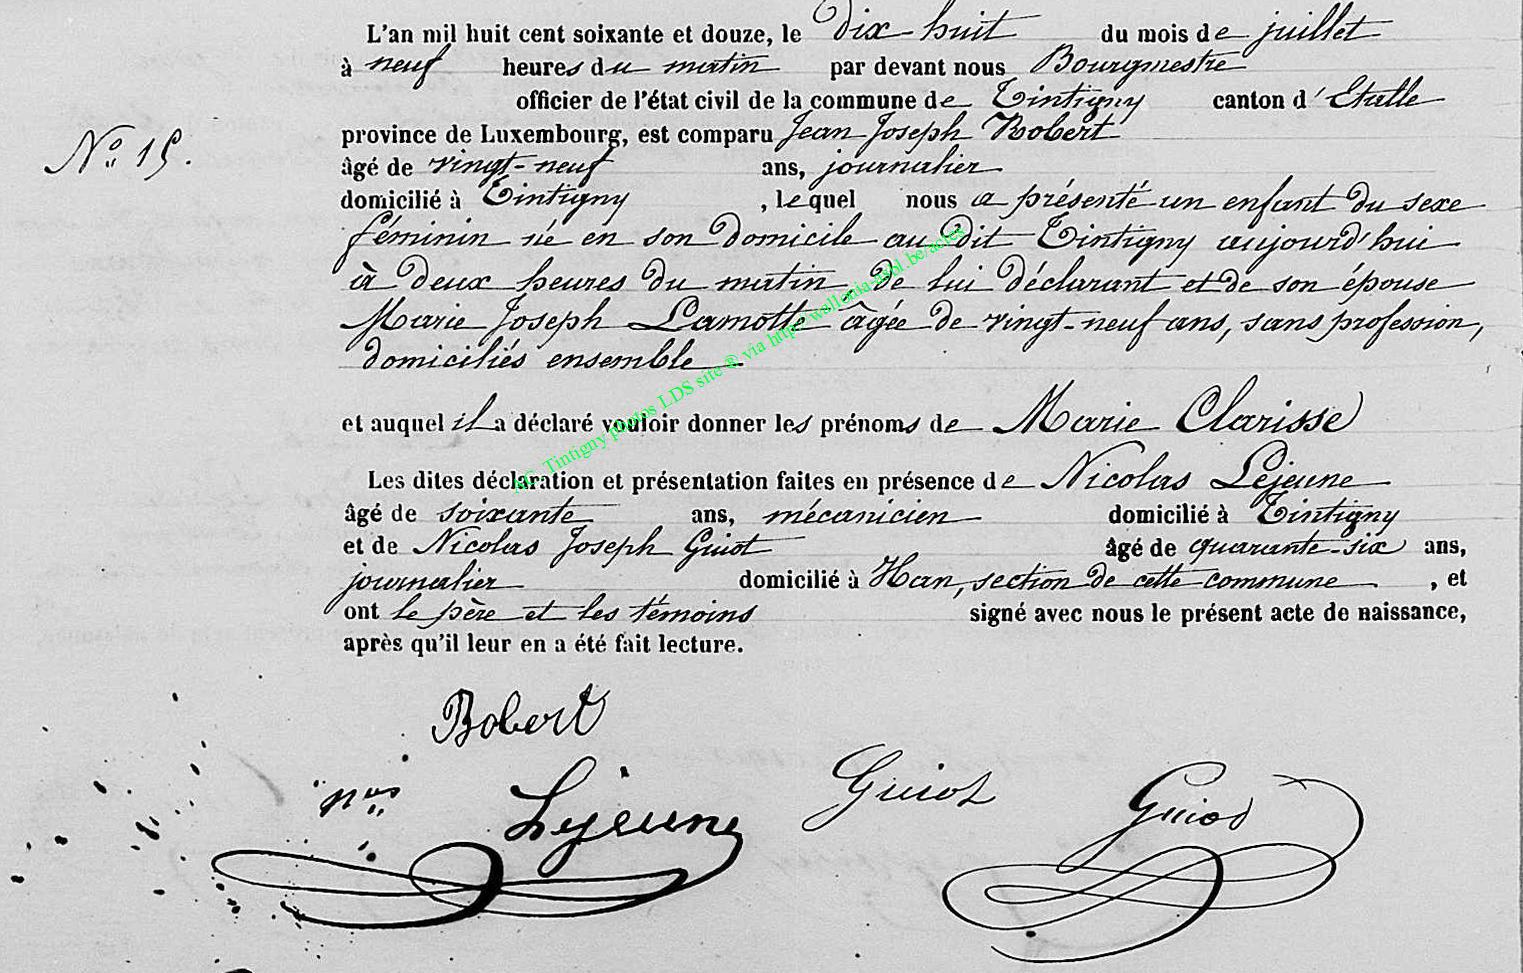 L'an mil huit cent soixante et douze, le dix-huit du mois de juillet
à neuf heures du matin par devant nous Bourgmestre
officier de l'état civil de la commune de Tintigny canton d'Etalle
province de Luxembourg, est comparu Jean Joseph Robert
Nº 15.
âgé de vingt-neuf ans, journalier
domicilié à Tintigny, lequel nous a présenté un enfant du sexe
féminin né en son domicile au dit Tintigny aujourd'hui
à deux heures du matin, de lui déclarant et de son épouse
Marie Joseph Lamotte âgée de vingt-neuf ans, sans profession,
domiciliés ensemble
et auquel il a déclaré vouloir donner les prénoms de Marie Clarisse
Les dites déclaration et présentation faites en présence de Nicolas Lejeune
âgé de soixante ans, mécanicien domicilié à Tintigny
et de Nicolas Joseph Guiot âgé de quarante-six ans,
journalier domicilié à Han, section de cette commune, et
ont le père et les témoins signé avec nous le présent acte de naissance,
après qu'il leur en a été fait lecture.
AC Tintigny photos LDS site ® via http://wallonia-asbl.be/actes
Robert
Nas Lejeune Guiot Guiot